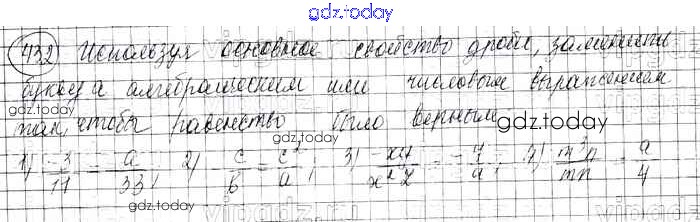 gdz.today
432 Используя основное свойство дроби, заменить
букву a алгебраическим или числовым выражением
gdz.today
так, чтобы равенство было верным
gdz.today
gdz.today
1) 3/17 = a/33; 2) c/b = c²/a; 3) xy/x²z = y/a; 4) m³n/mn = a/4
gdz.today